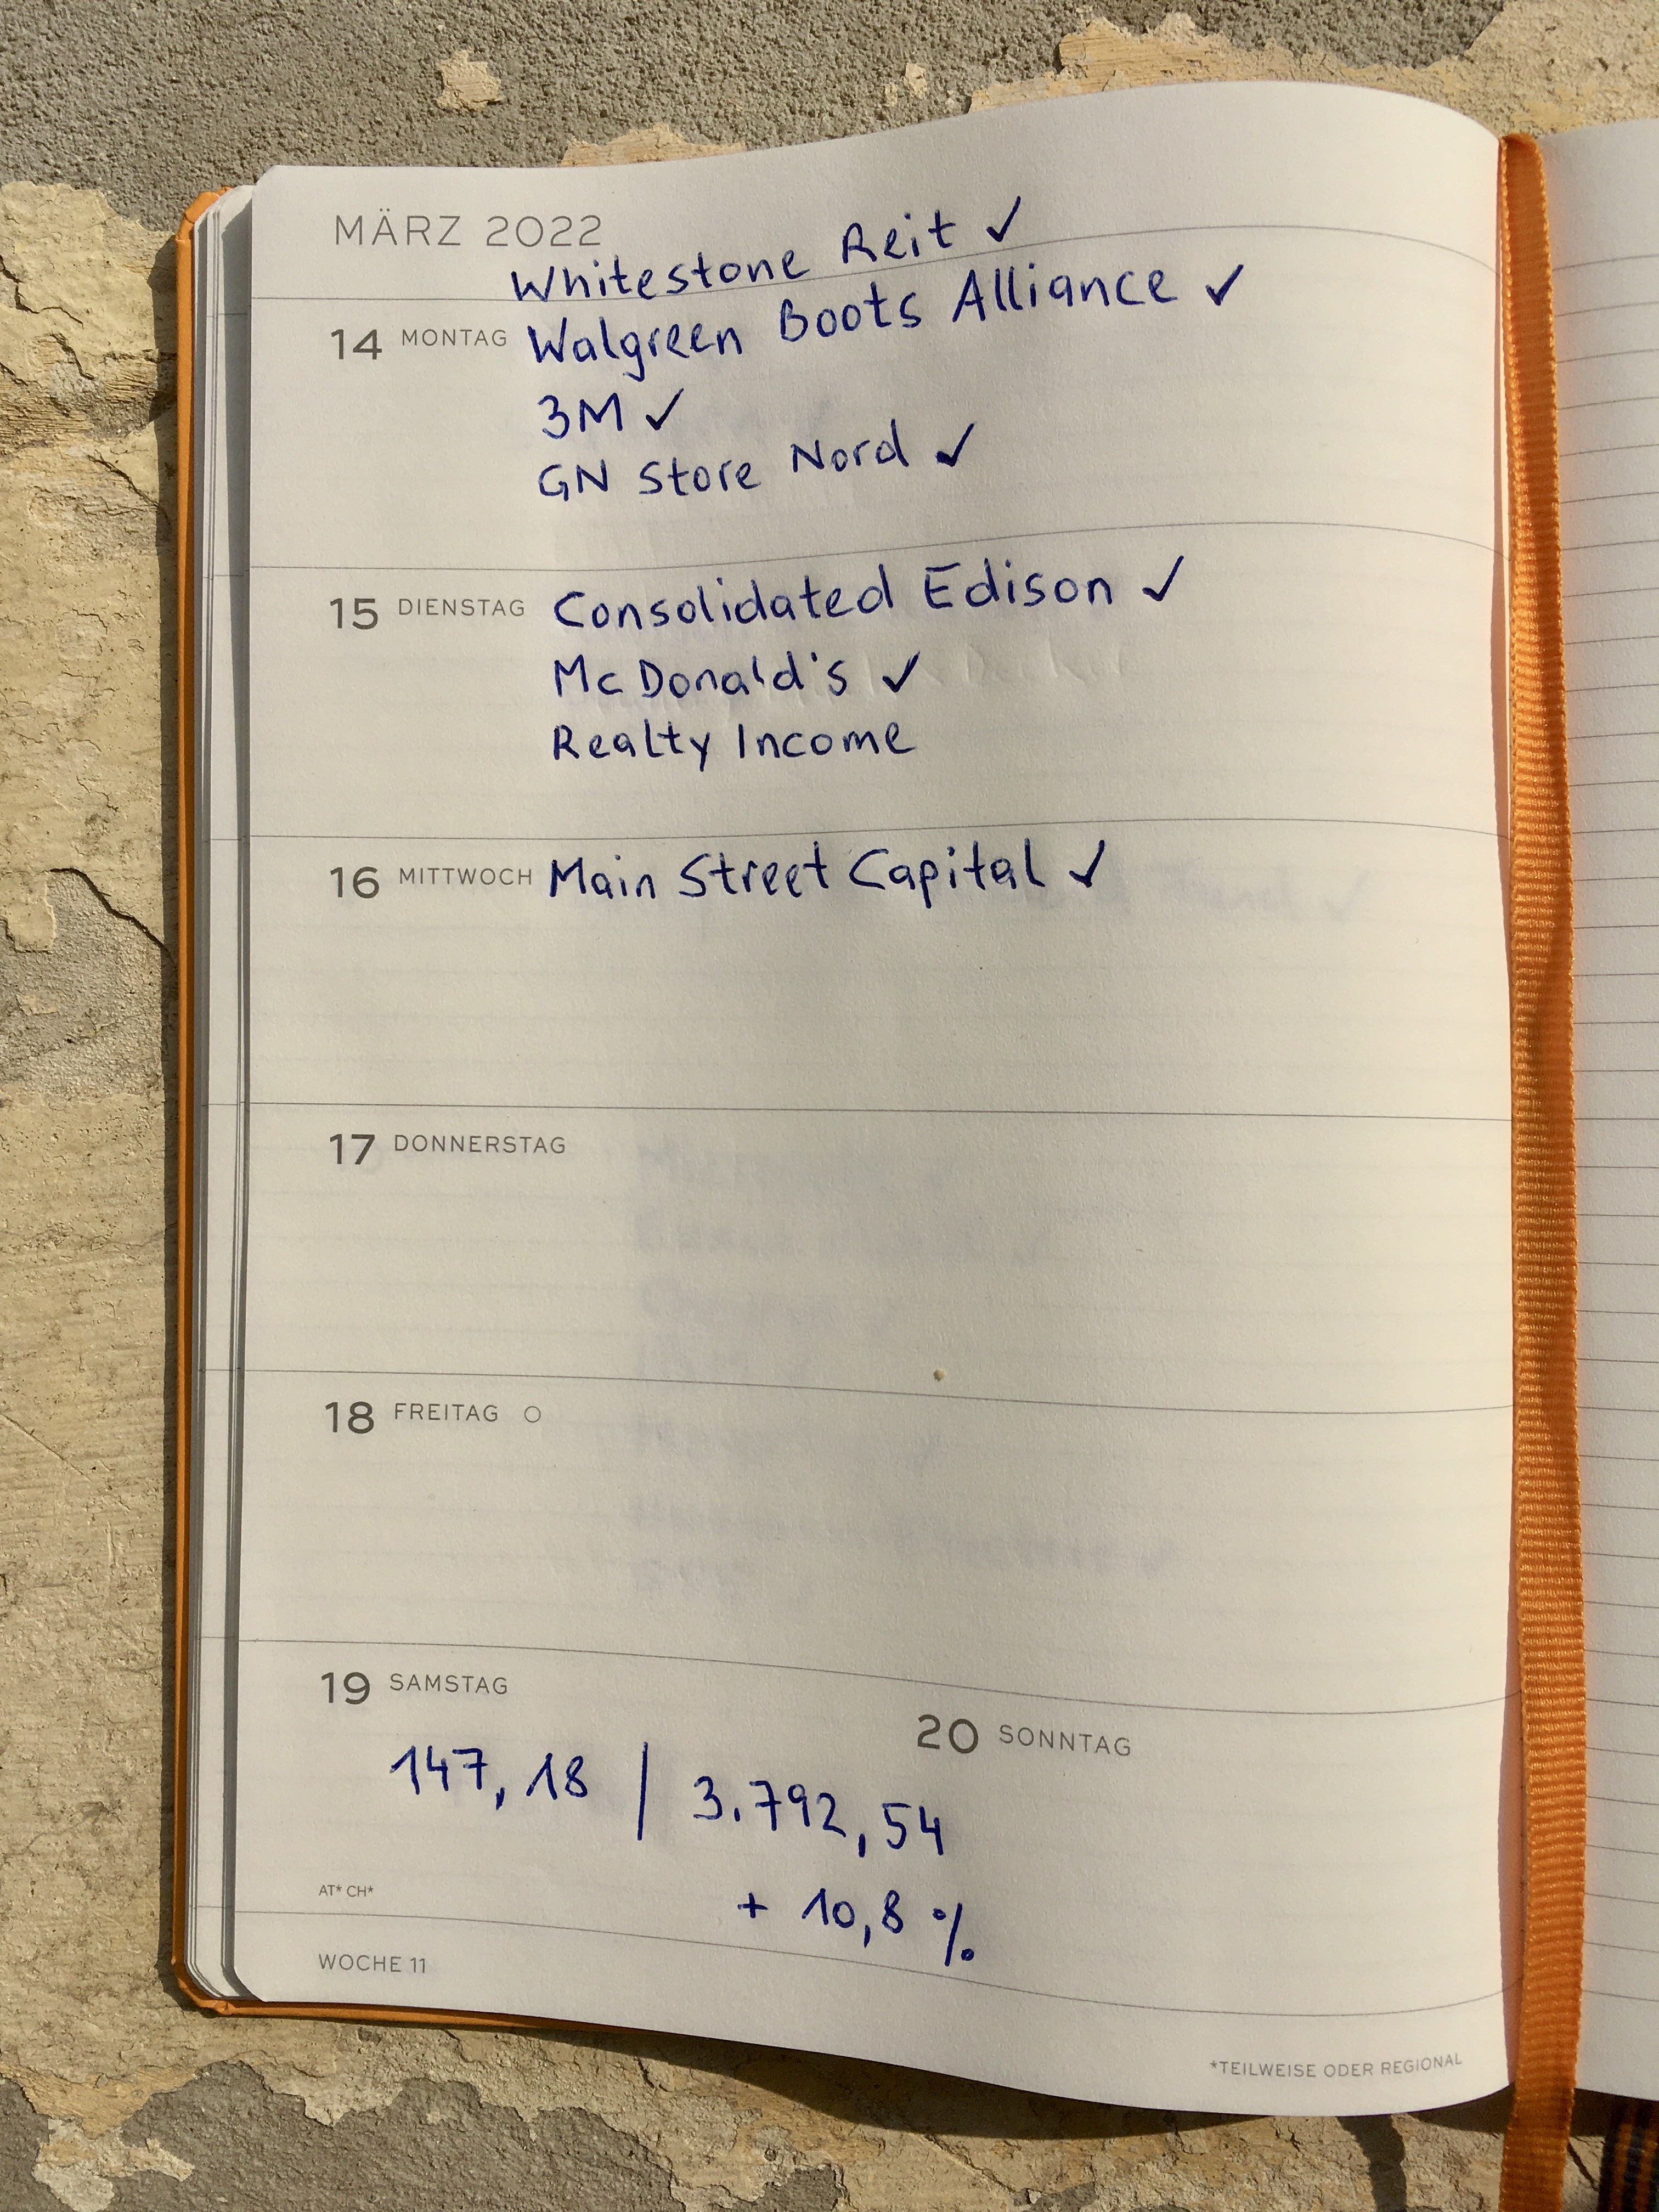 MÄRZ 2022
Whitestone Reit ✓
14 MONTAG Walgreen Boots Alliance ✓
3M ✓
GN Store Nord ✓
15 DIENSTAG Consolidated Edison ✓
McDonald's ✓
Realty Income
16 MITTWOCH Main Street Capital ✓
17 DONNERSTAG
18 FREITAG ○
19 SAMSTAG
20 SONNTAG
147,18 / 3.792,54
+ 10,8 %
AT* CH*
WOCHE 11
*TEILWEISE ODER REGIONAL